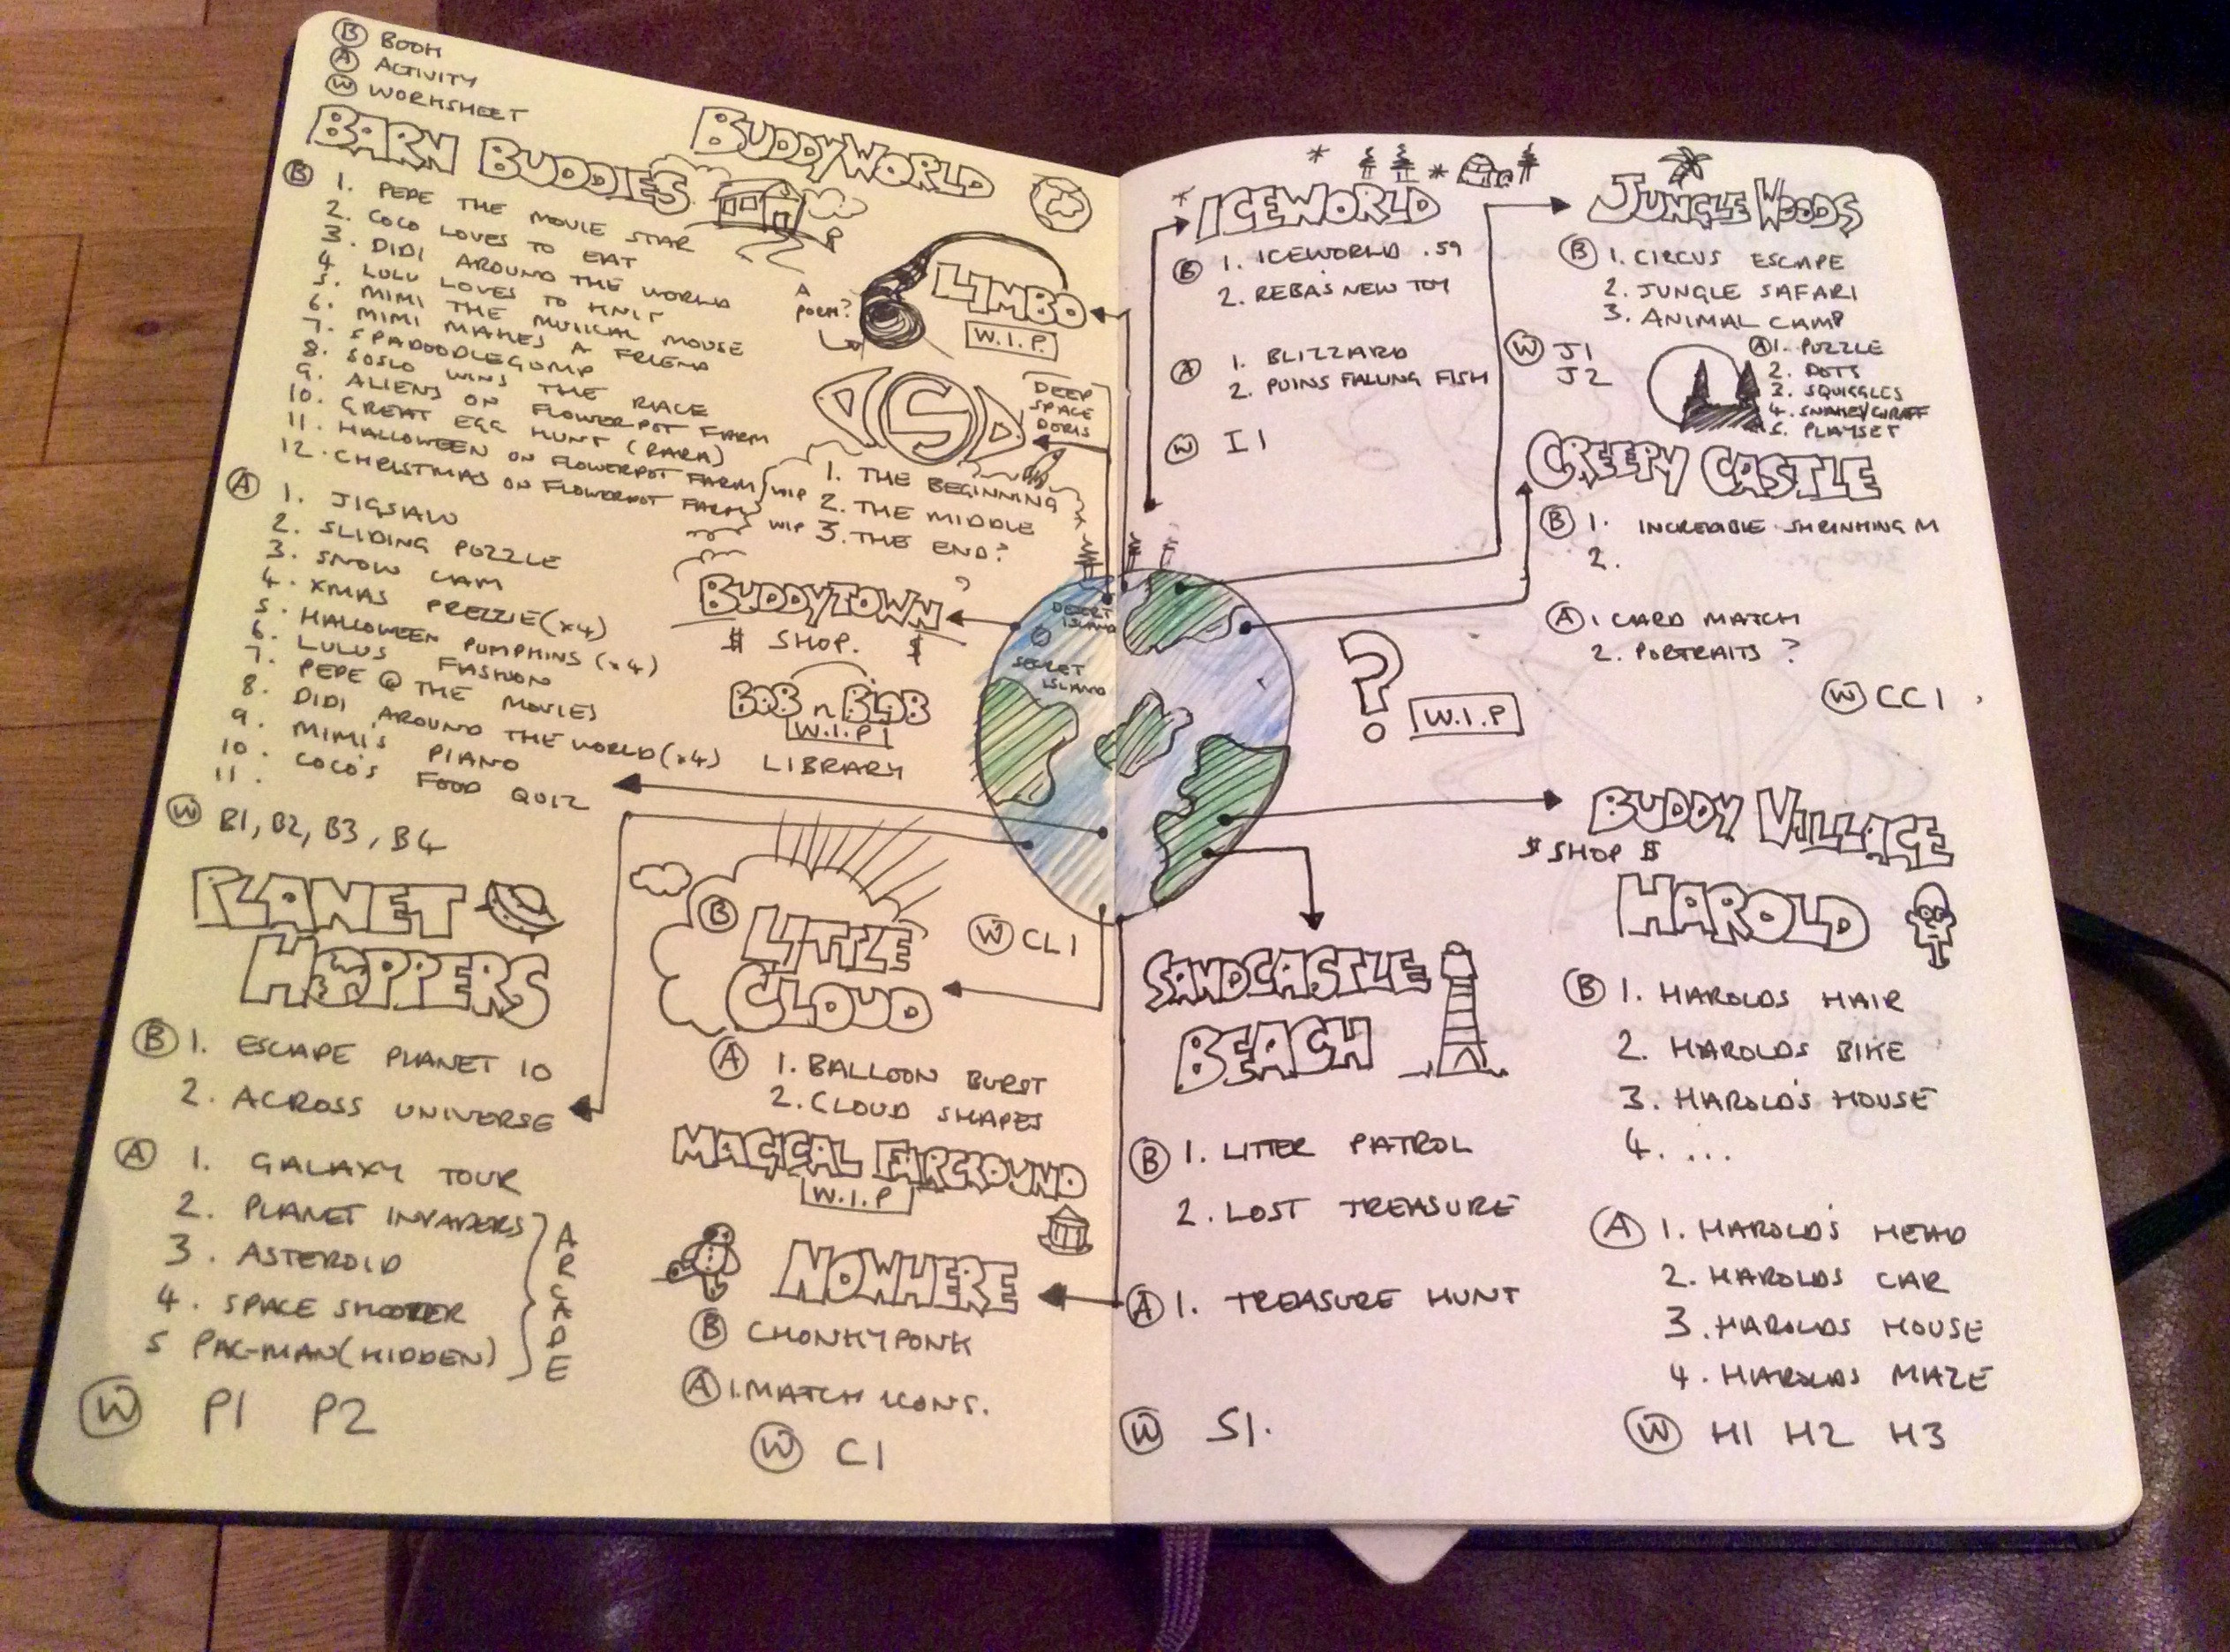 B BOOK
A ACTIVITY
W WORKSHEET
BARN BUDDIES
B 1. PEPE THE MOVIE STAR
2. COCO LOVES TO EAT
3. DIDI AROUND THE WORLD
4. LULU LOVES TO KNIT
5. MIMI THE MUSICAL MOUSE
6. MIMI MAKES A FRIEND
7. SPADOODLEGUMP
8. SOSLO WINS THE RACE
9. ALIENS ON FLOWERPOT FARM
10. GREAT EGG HUNT (RARA)
11. HALLOWEEN ON FLOWERPOT FARM } WIP
12. CHRISTMAS ON FLOWERPOT FARM } WIP
A 1. JIGSAW
2. SLIDING PUZZLE
3. SNOW CAM
4. XMAS PREZZIE (x4)
5. HALLOWEEN PUMPKINS (x4)
6. LULUS FASHION
7. PEPE @ THE MOVIES
8. DIDI AROUND THE WORLD (x4)
9. MIMI'S PIANO
10. COCO'S FOOD QUIZ
11.
W B1, B2, B3, B4
PLANET
HOPPERS
B 1. ESCAPE PLANET 10
2. ACROSS UNIVERSE
A 1. GALAXY TOUR
2. PLANET INVADERS
3. ASTEROID
4. SPACE SHOOTER
5 PAC-MAN (HIDDEN)
ARCADE
W P1 P2
BUDDYWORLD
A
POEM?
LIMBO
W.I.P.
DSD
DEEP
SPACE
DORIS
1. THE BEGINNING
2. THE MIDDLE
3. THE END?
BUDDYTOWN ?
$ SHOP. $
BOB n BLOB
W.I.P
LIBRARY
B LITTLE
CLOUD
W CL1
A 1. BALLOON BURST
2. CLOUD SHAPES
MAGICAL FAIRGROUND
W.I.P
NOWHERE
B CHONKYPONK
A 1. MATCH ICONS.
W C1
DESERT
ISLAND
SECRET
ISLAND
ICEWORLD
B 1. ICEWORLD .59
2. REBA'S NEW TOY
A 1. BLIZZARD
2. PUINS FALLING FISH
W I1
JUNGLE WOODS
B 1. CIRCUS ESCAPE
2. JUNGLE SAFARI
3. ANIMAL CAMP
W J1
J2
A 1. PUZZLE
2. DOTS
3. SQUIGGLES
4. SNAKEY/GIRAFF
5. PLAYSET
CREEPY CASTLE
B 1. INCREDIBLE SHRINKING M
2.
A 1 CARD MATCH
2. PORTRAITS ?
W CC1
?
W.I.P
BUDDY VILLAGE
$ SHOP $
HAROLD
B 1. HAROLDS HAIR
2. HAROLDS BIKE
3. HAROLD'S HOUSE
4. ...
A 1. HAROLD'S HEAD
2. HAROLDS CAR
3. HAROLDS HOUSE
4. HAROLDS MAZE
W H1 H2 H3
SANDCASTLE
BEACH
B 1. LITTER PATROL
2. LOST TREASURE
A 1. TREASURE HUNT
W S1.